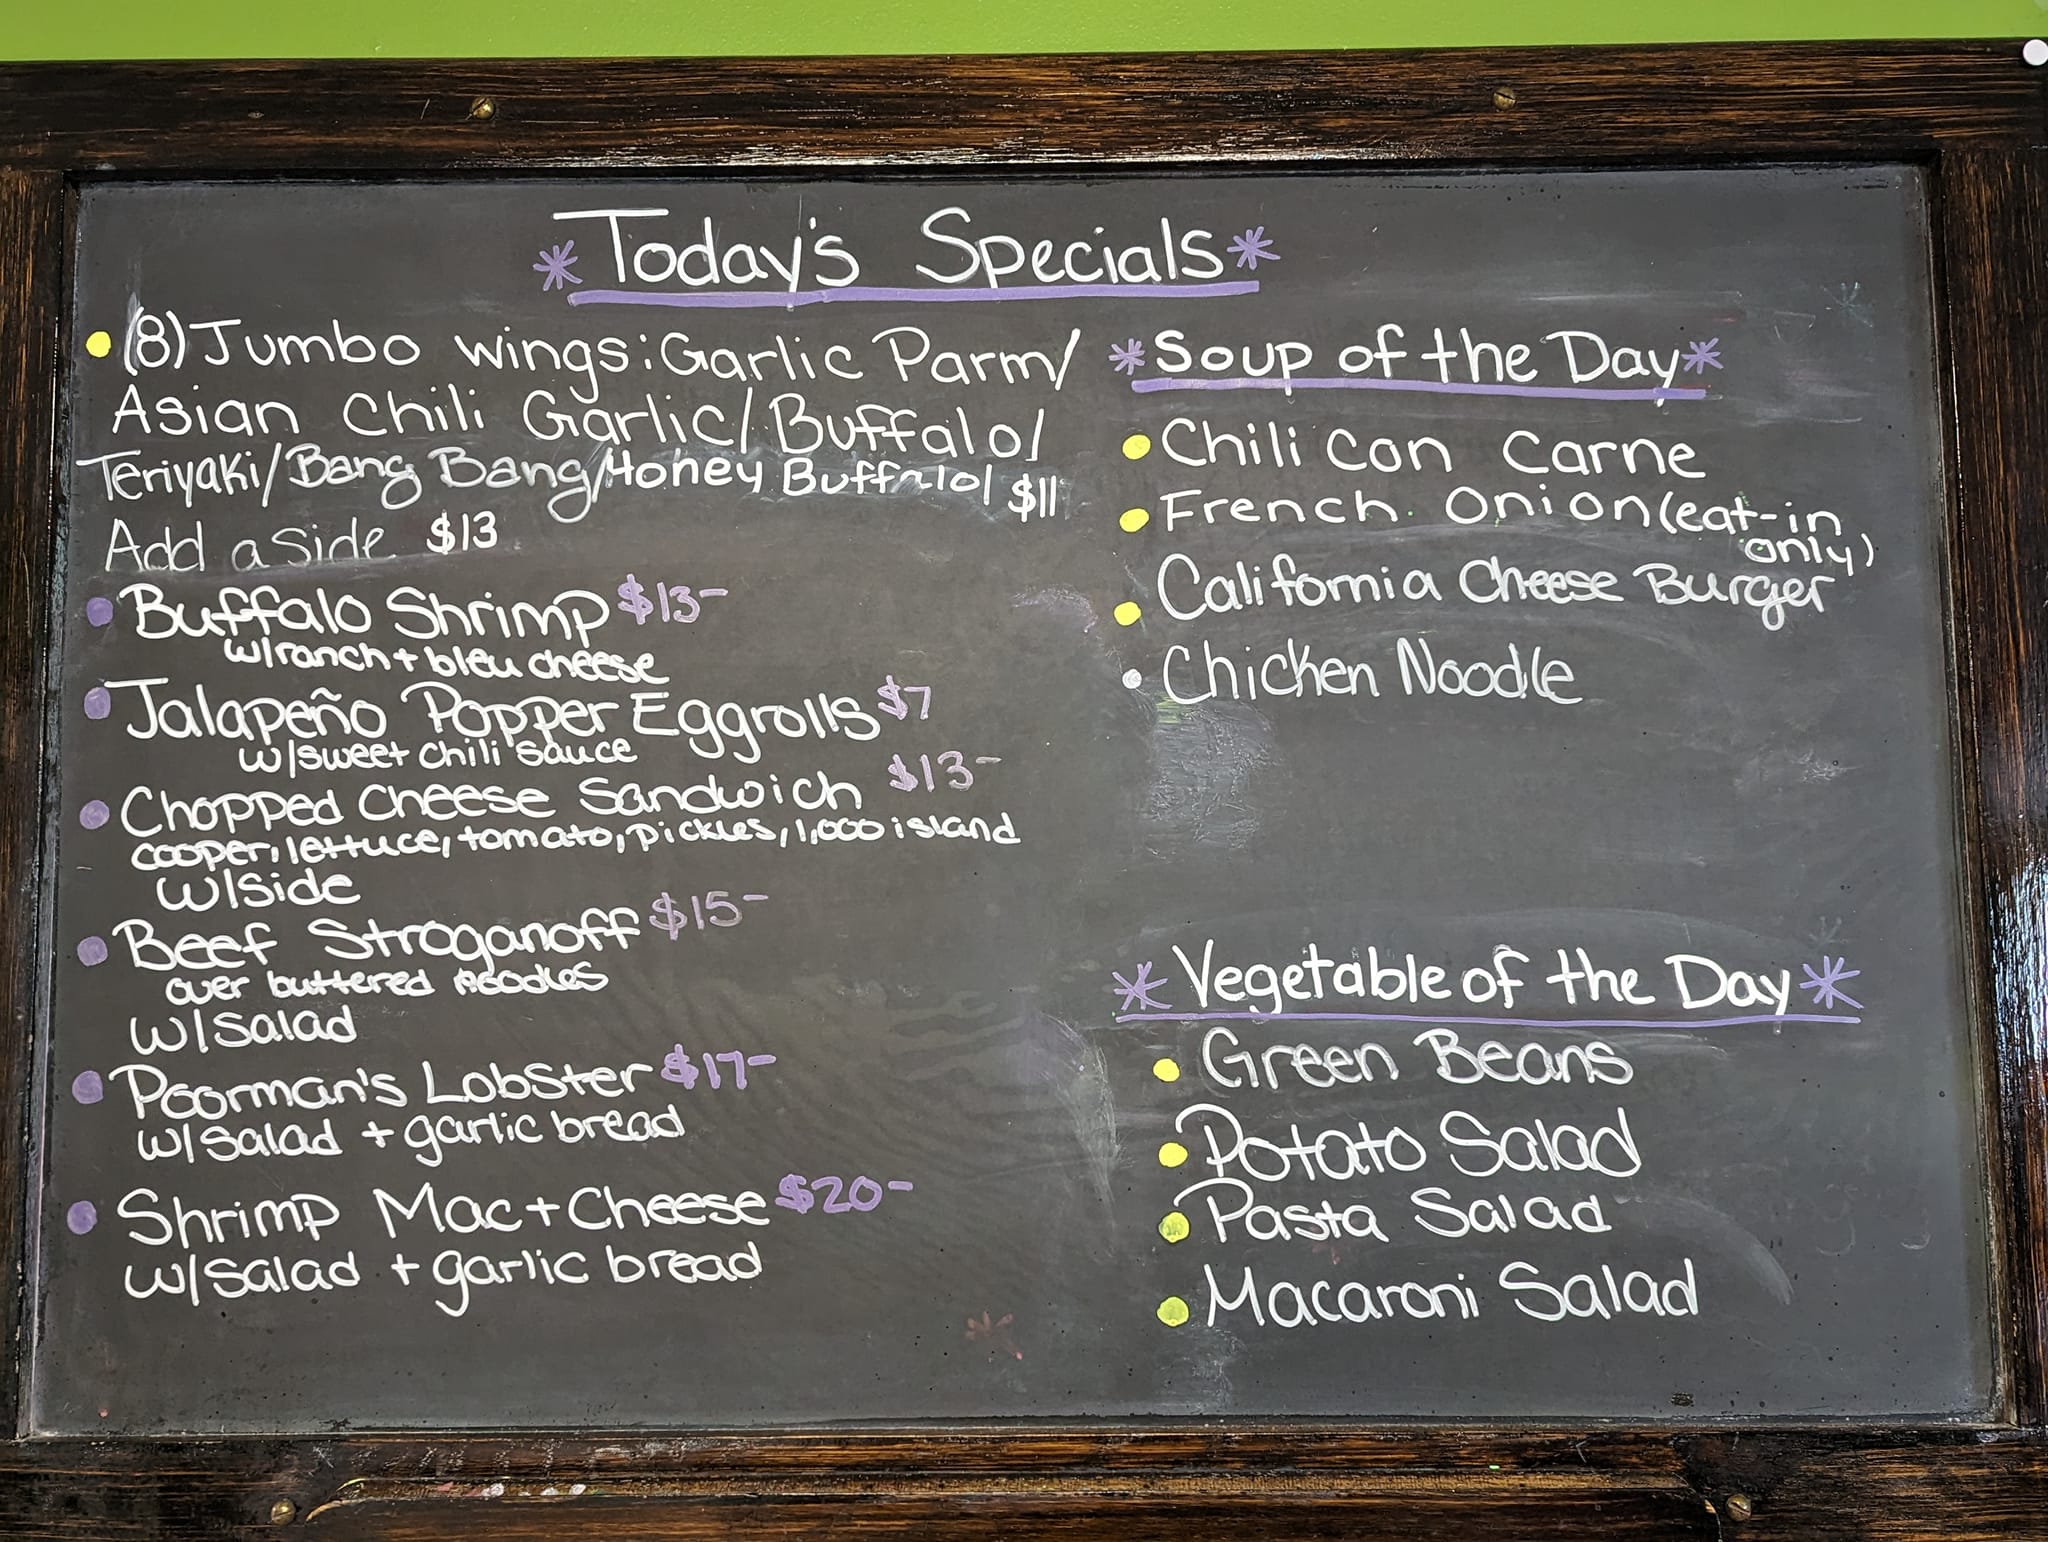 *Today's Specials*
• (8) Jumbo wings: Garlic Parm/
Asian Chili Garlic/Buffalo/
Teriyaki/Bang Bang/Honey Buffalo/ $11
Add a side $13
• Buffalo Shrimp $13-
w/ranch + bleu cheese
• Jalapeño Popper Eggrolls $7
w/sweet chili sauce
• Chopped Cheese Sandwich $13-
cooper, lettuce, tomato, pickles, 1,000 island
w/side
• Beef Stroganoff $15-
over buttered noodles
w/salad
• Poorman's Lobster $17-
w/salad + garlic bread
• Shrimp Mac + Cheese $20-
w/salad + garlic bread
*Soup of the Day*
• Chili con carne
• French Onion (eat-in
only)
• California Cheese Burger
• Chicken Noodle
*Vegetable of the Day*
• Green Beans
• Potato Salad
• Pasta Salad
• Macaroni Salad